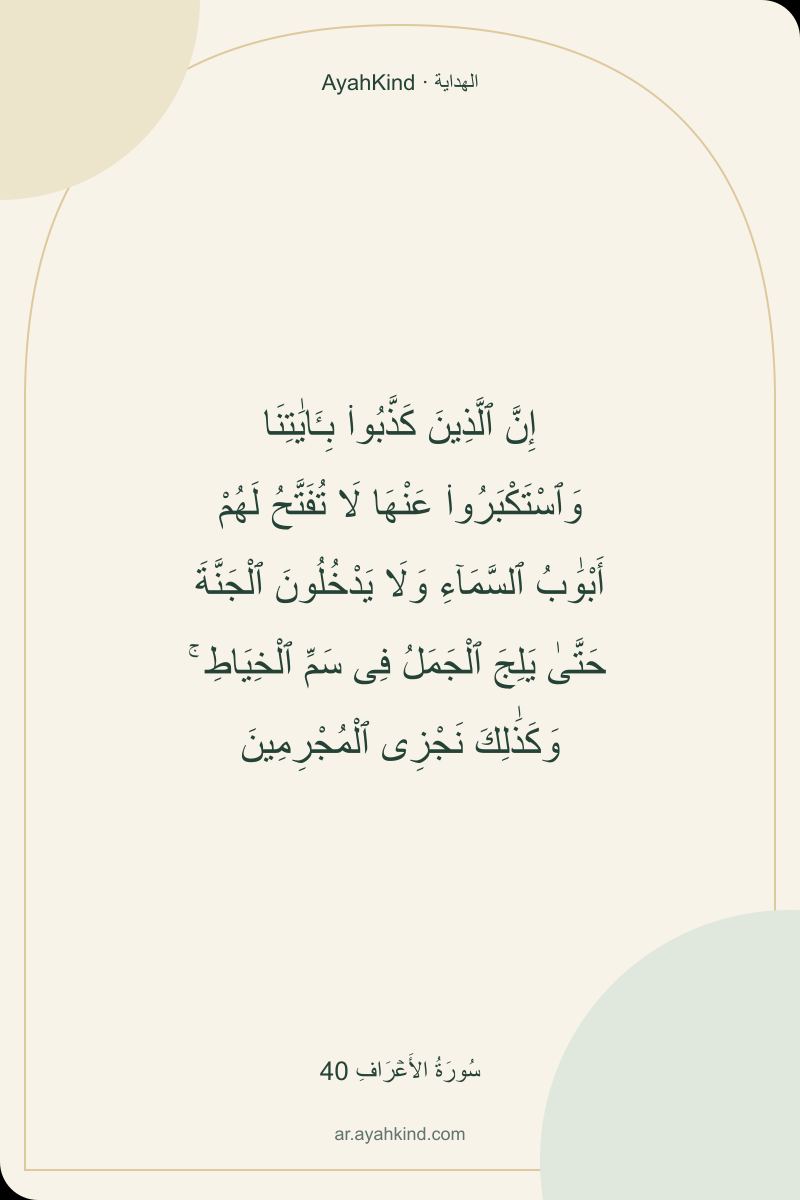 AyahKind · الهداية
إِنَّ ٱلَّذِينَ كَذَّبُوا۟ بِـَٔايَـٰتِنَا
وَٱسْتَكْبَرُوا۟ عَنْهَا لَا تُفَتَّحُ لَهُمْ
أَبْوَٰبُ ٱلسَّمَآءِ وَلَا يَدْخُلُونَ ٱلْجَنَّةَ
حَتَّىٰ يَلِجَ ٱلْجَمَلُ فِى سَمِّ ٱلْخِيَاطِ ۚ
وَكَذَٰلِكَ نَجْزِى ٱلْمُجْرِمِينَ
سُورَةُ الأَعۡرَافِ 40
ar.ayahkind.com